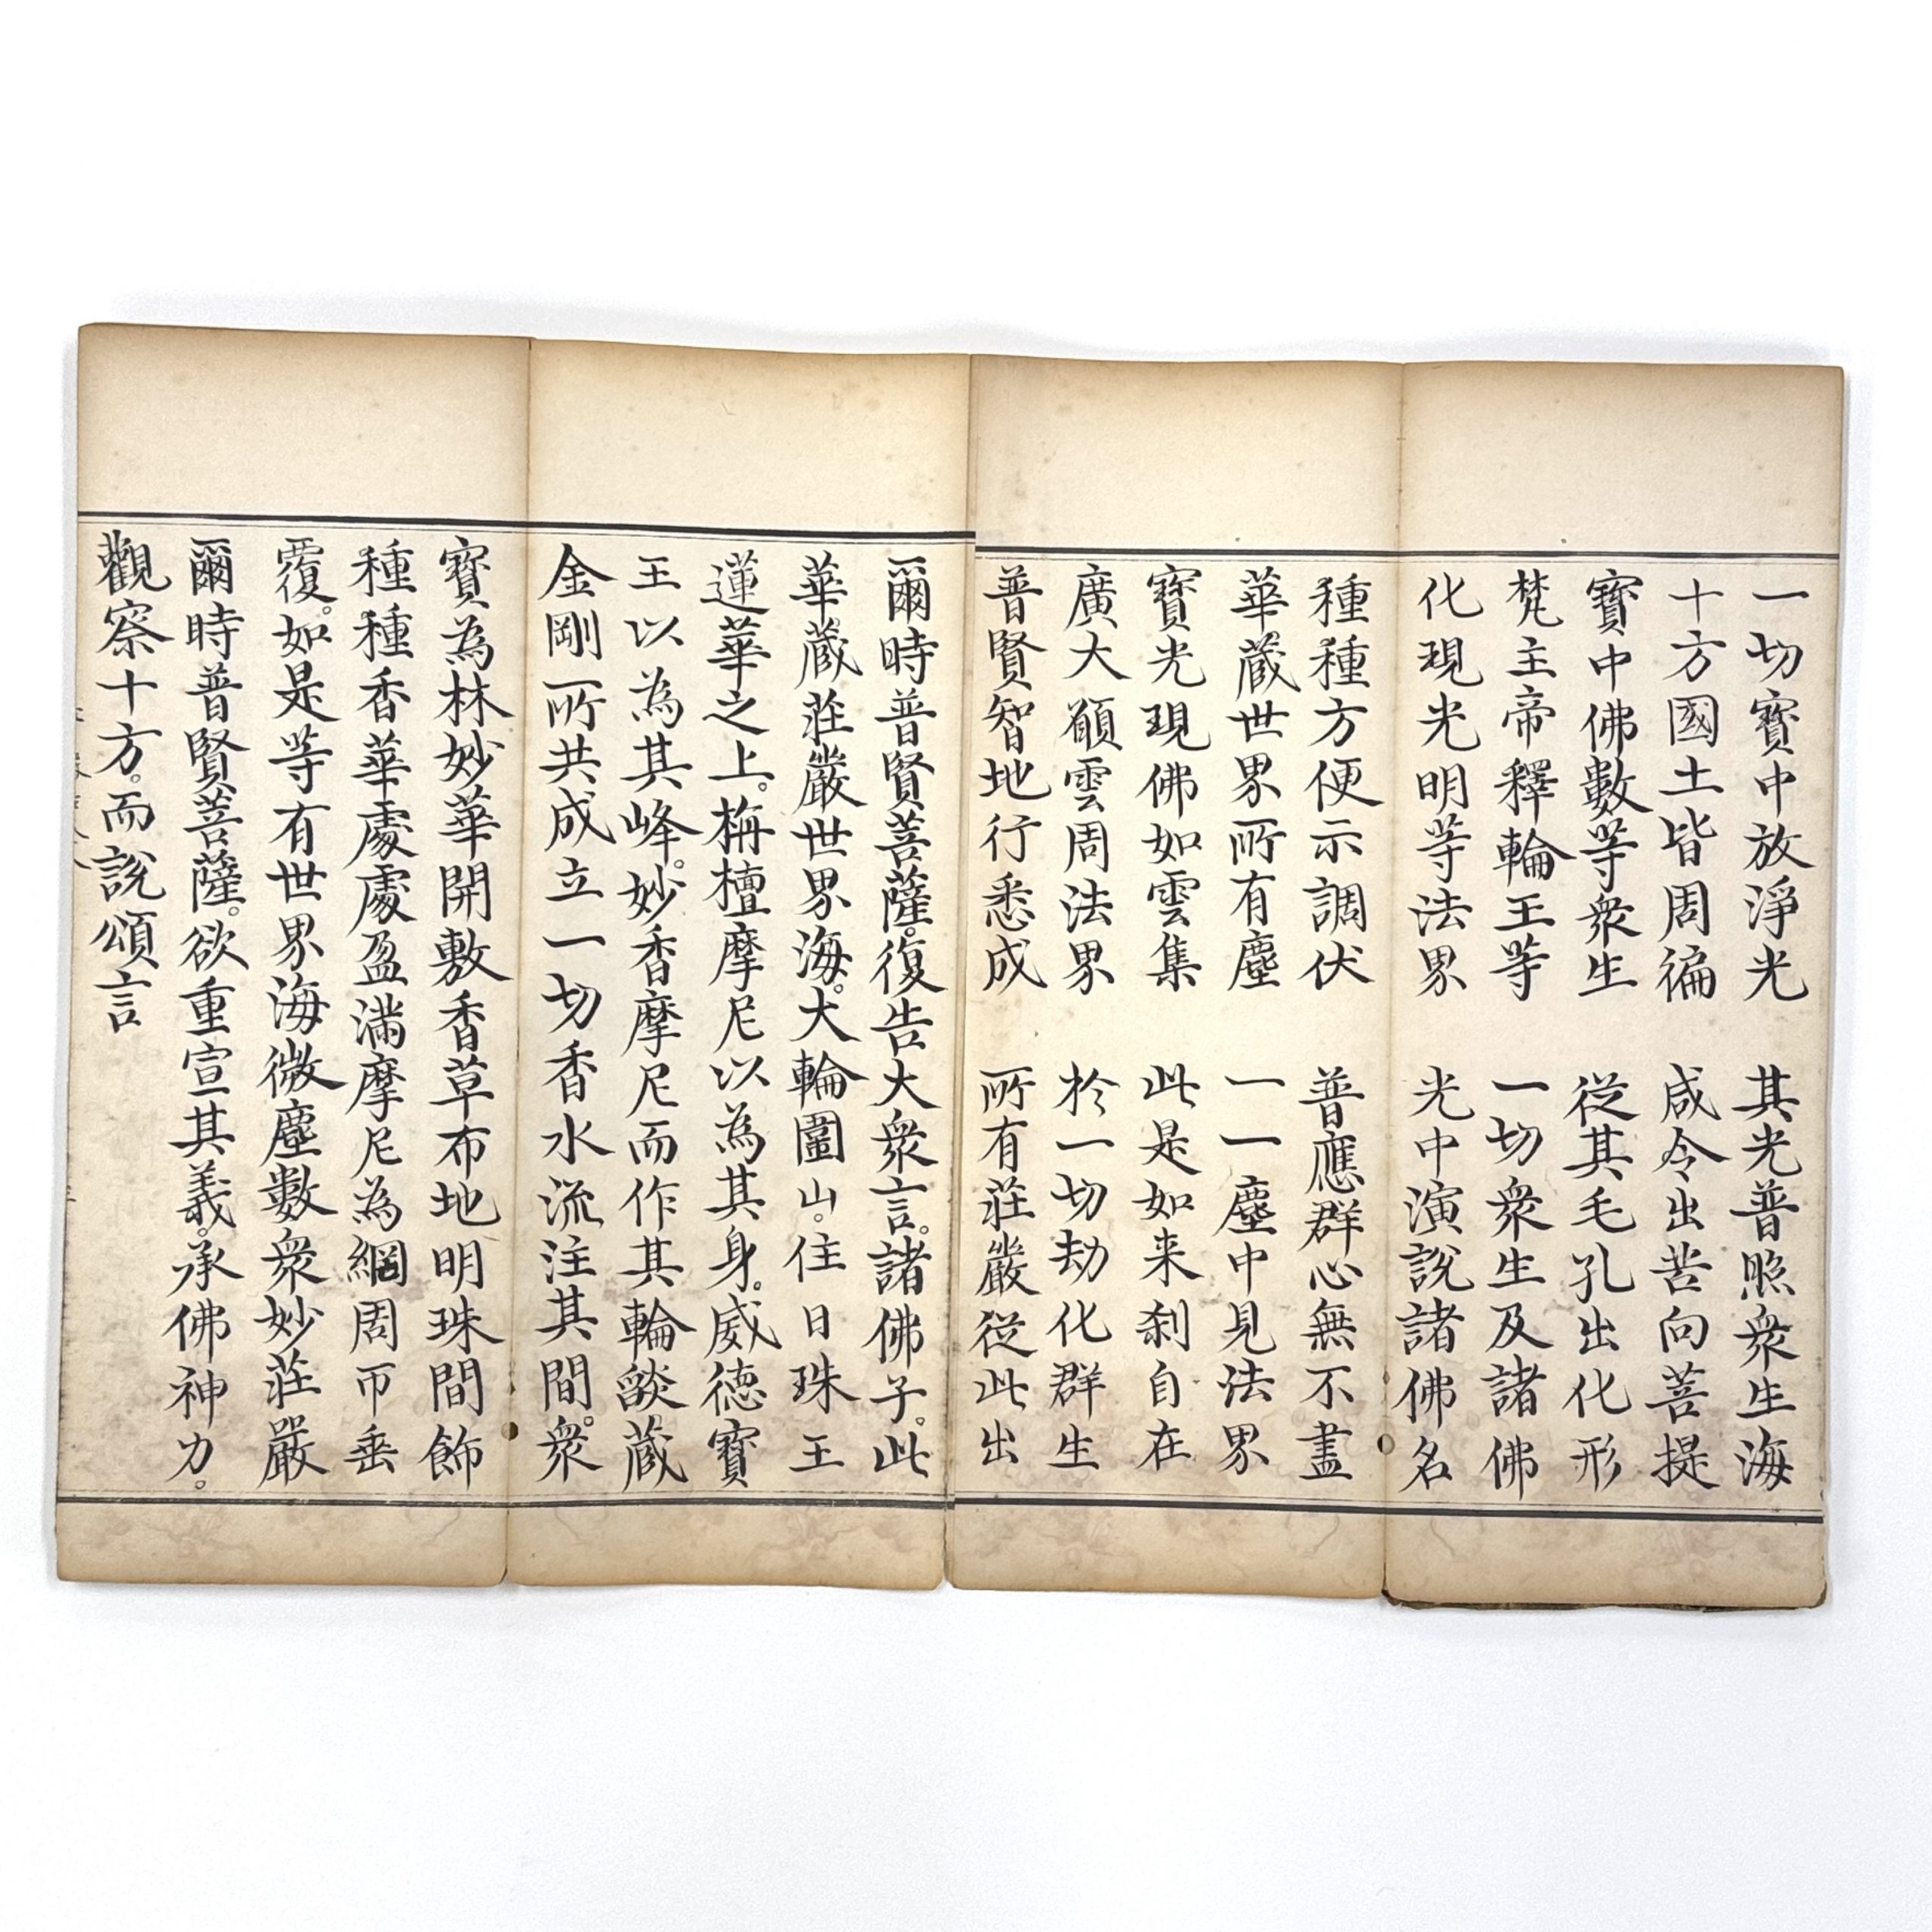 一切寶中放淨光　其光普照衆生海
十方國土皆周徧　咸令出苦向菩提
寶中佛數等衆生　從其毛孔出化形
梵主帝釋輪王等　一切衆生及諸佛
化現光明等法界　光中演說諸佛名
種種方便示調伏　普應群心無不盡
華藏世界所有塵　一一塵中見法界
寶光現佛如雲集　此是如来刹自在
廣大願雲周法界　於一切劫化群生
普賢智地行悉成　所有莊嚴從此出
爾時普賢菩薩。復告大衆言。諸佛子。此
華藏莊嚴世界海。大輪圍山。住日珠王
蓮華之上。栴檀摩尼以為其身。威德寶
王以為其峰。妙香摩尼而作其輪。燄藏
金剛所共成立一切香水流注其間。衆
寶為林妙華開敷香草布地明珠間飾
種種香華處處盈滿摩尼為網周帀垂
覆。如是等有世界海微塵數衆妙莊嚴
爾時普賢菩薩。欲重宣其義。承佛神力。
觀察十方。而說頌言